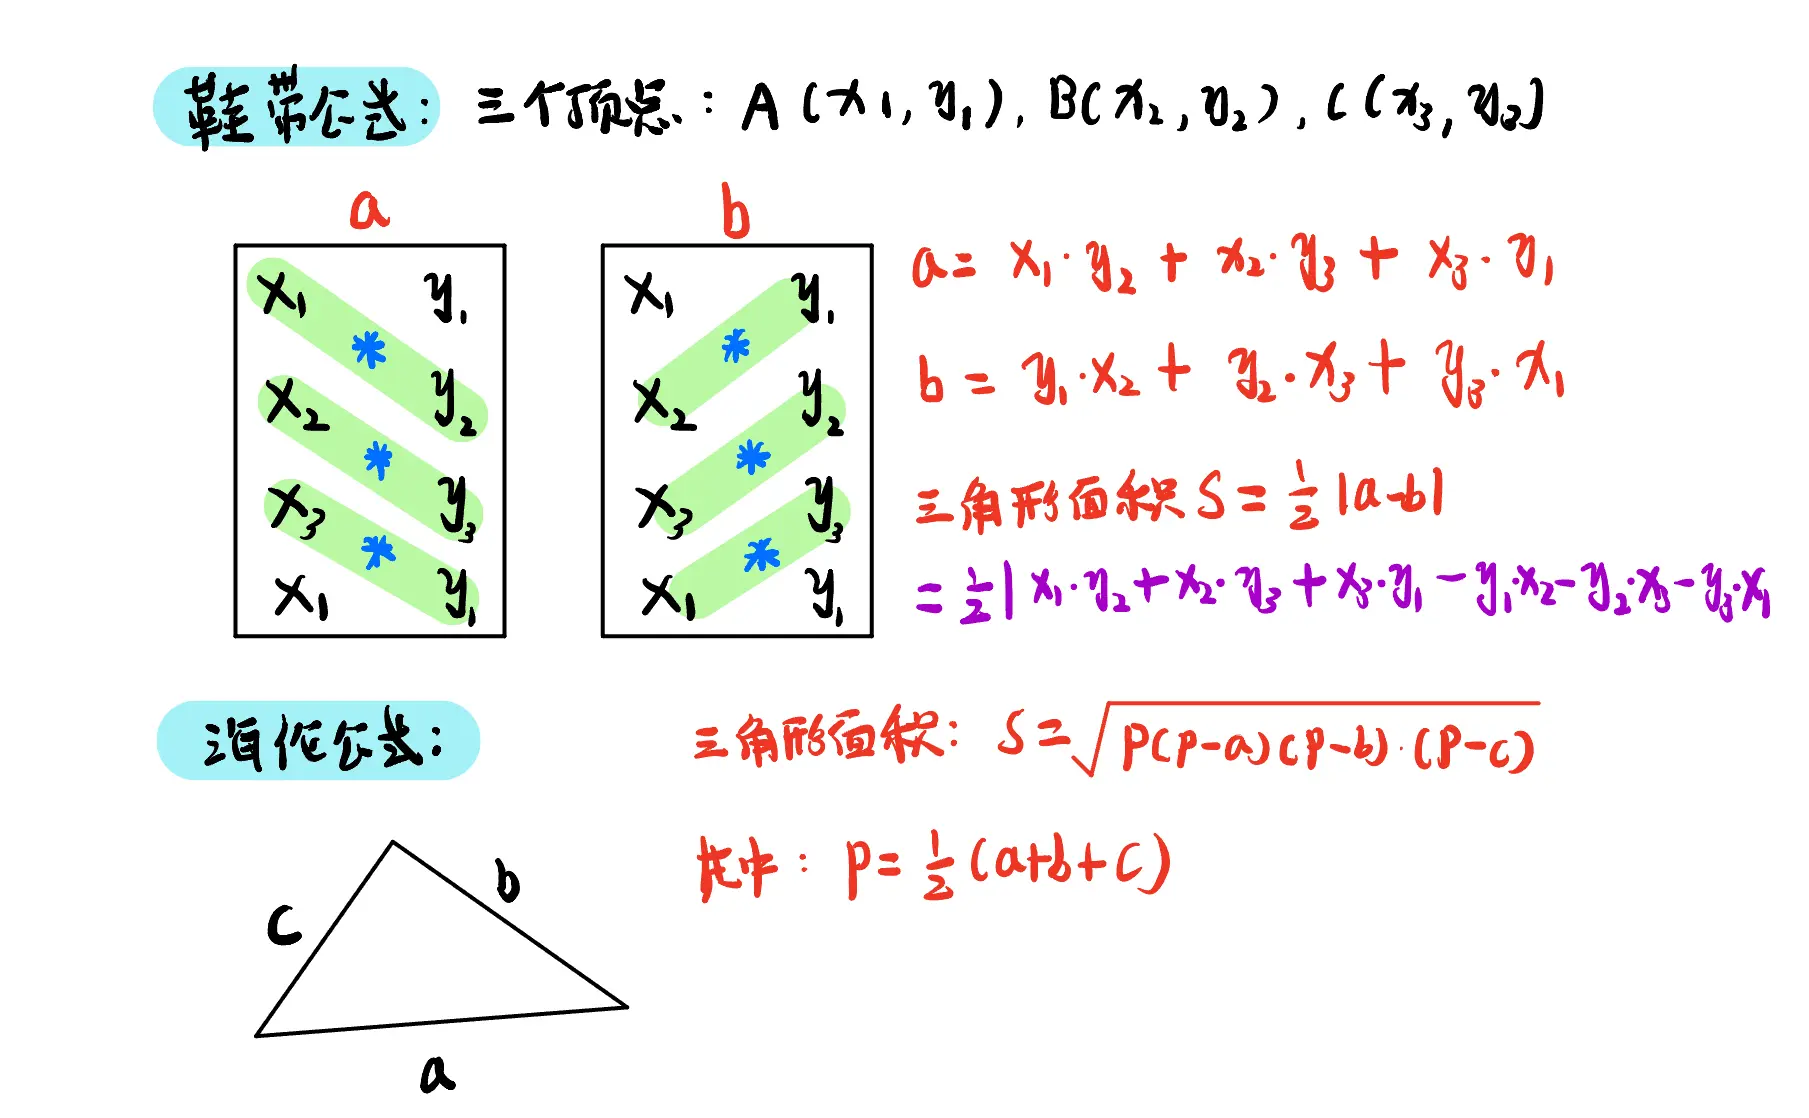 鞋带公式: 三个顶点: A(x₁,y₁), B(x₂,y₂), C(x₃,y₃)
a
x₁ y₁
*
x₂ y₂
*
x₃ y₃
*
x₁ y₁
b
x₁ y₁
*
x₂ y₂
*
x₃ y₃
*
x₁ y₁
a= x₁·y₂ + x₂·y₃ + x₃·y₁
b = y₁·x₂ + y₂·x₃ + y₃·x₁
三角形面积 S = ½|a-b|
= ½|x₁·y₂+x₂·y₃+x₃·y₁-y₁·x₂-y₂·x₃-y₃·x₁
海伦公式:
三角形面积: S=√P(P-a)(P-b)·(P-c)
其中: P=½(a+b+c)
c
b
a